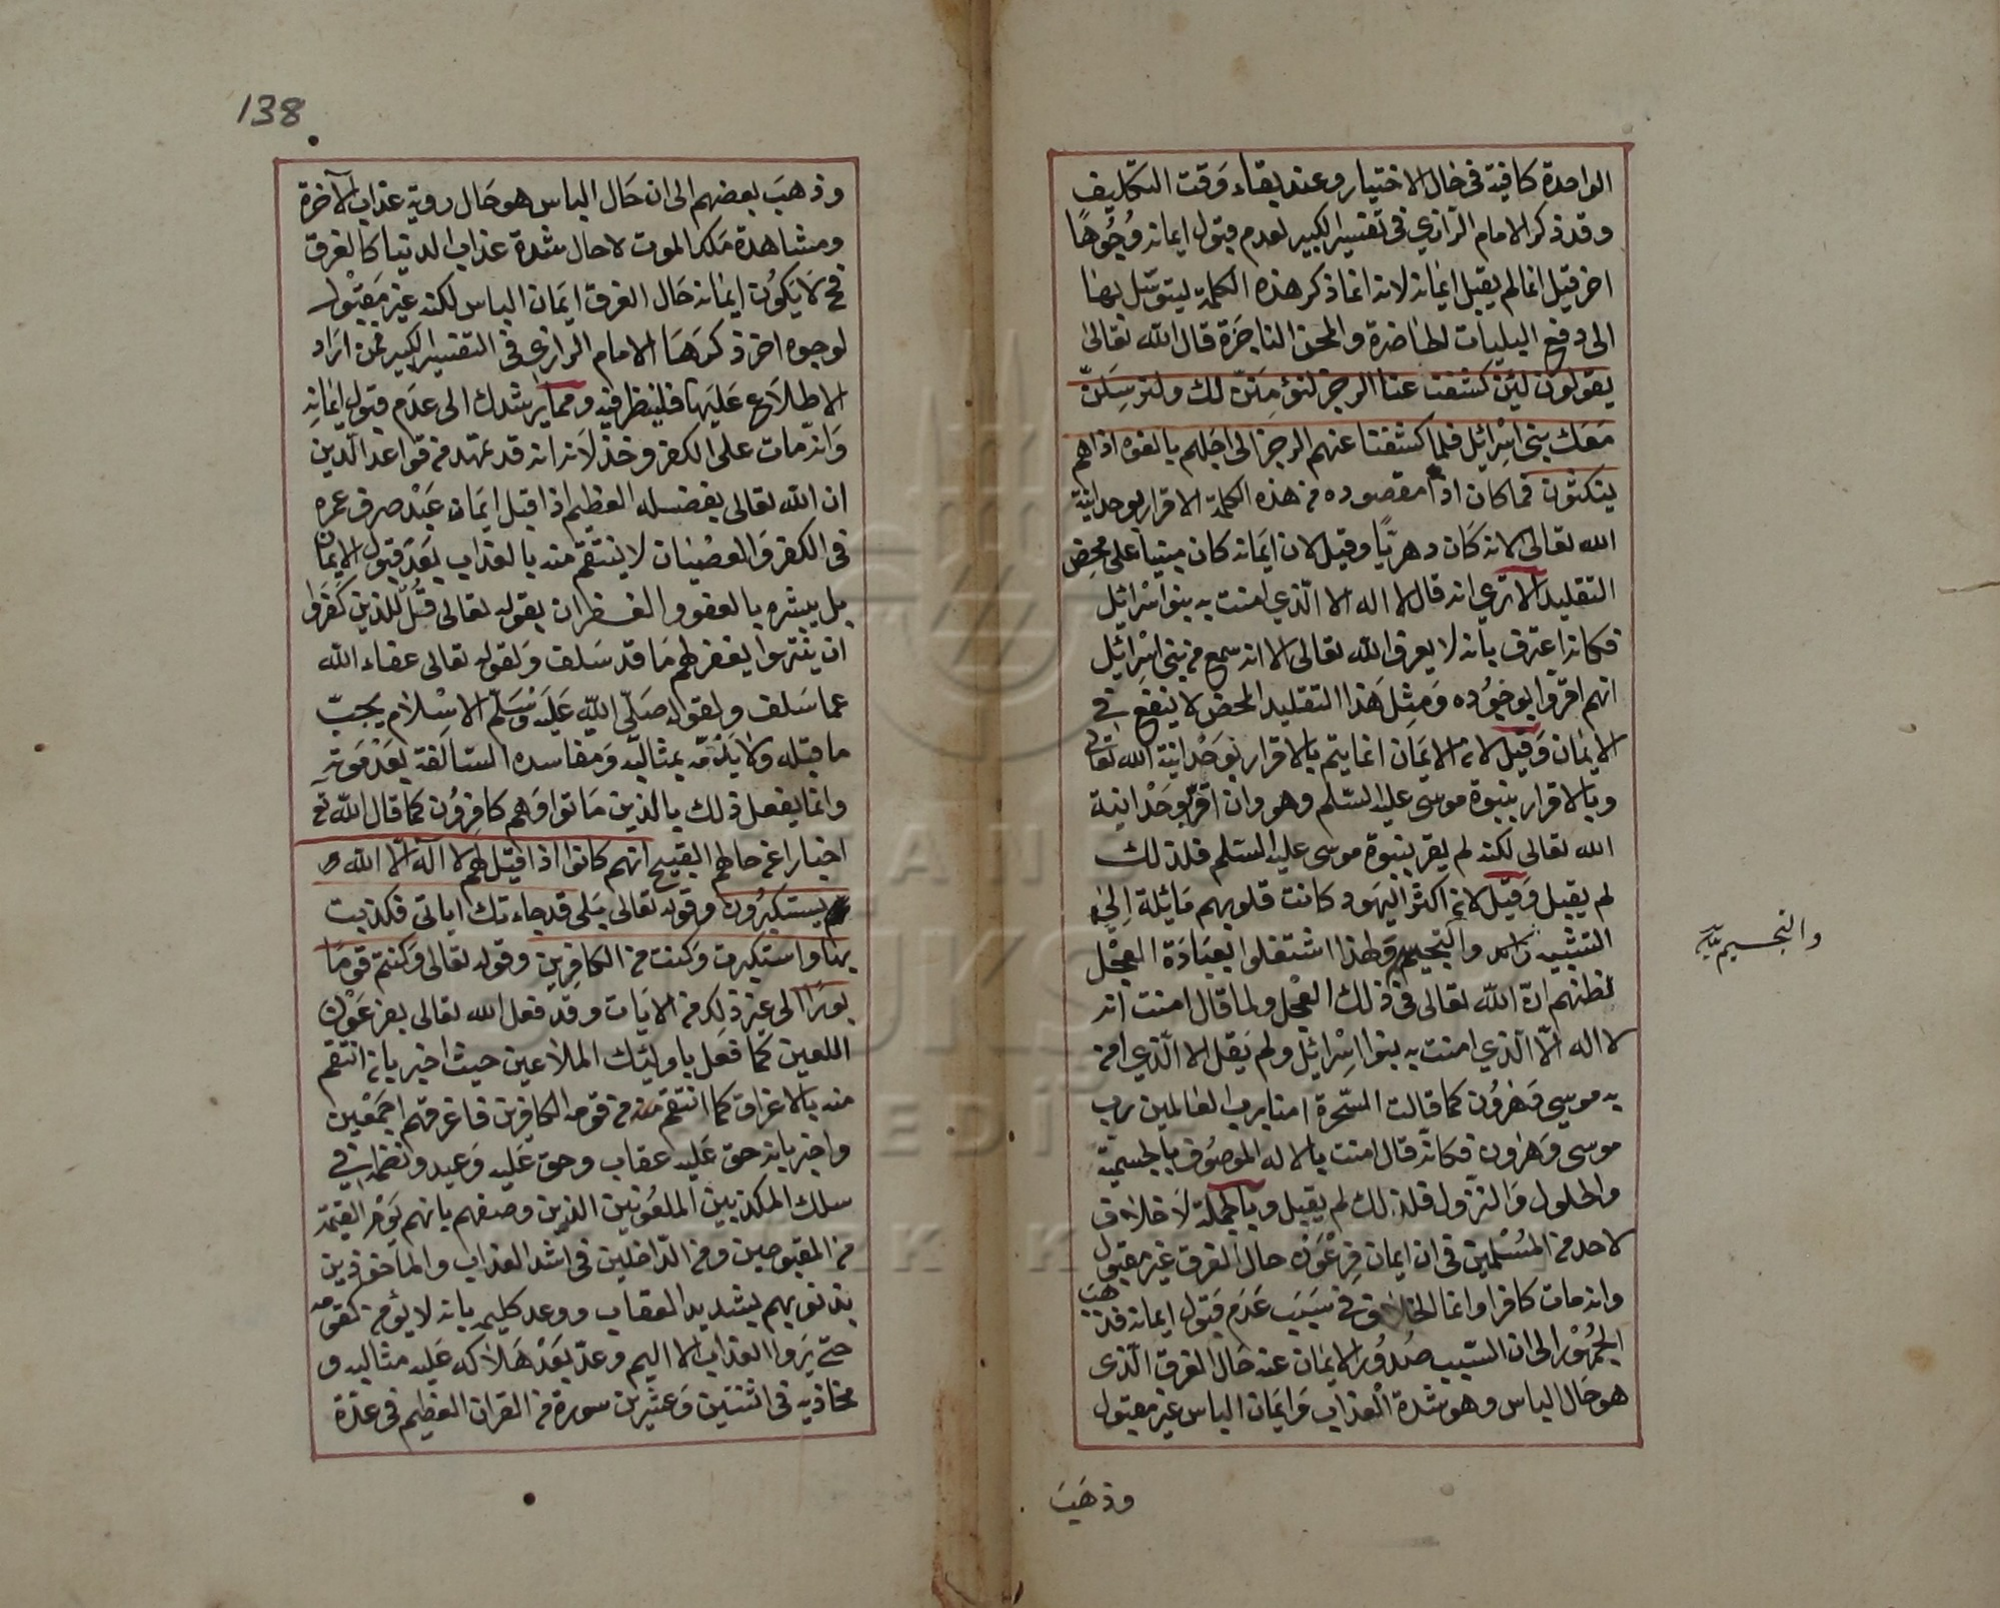 الواحدة كافية في حال الاختيار وعند بقاء وقت التكليف
وقد ذكر الامام الرازي في تفسير الكبير لعدم قبول ايمانه وجوها
اخر قيل انما لم يقبل ايمانه لانه انما ذكر هذه الكلمة ليتوسل بها
الى دفع البليات الحاضرة والمحن الناجزة قال الله تعالى
يقولون لئن كشفت عنا الرجز لنؤمنن لك ولنرسلن
معك بني اسرائيل فلما كشفنا عنهم الرجز الى اجلهم بالغوه اذا هم
ينكثون فما كان اذا مقصوده من هذه الكلمة الاقرار بوحدانية
الله تعالى لانه كان دهريا وقيل لان ايمانه كان مبنيا على محض
التقليد الا ترى انه قال لا اله الا الذي امنت به بنوا اسرائيل
فكانه اعترف بانه لا يعرف الله تعالى الا انه سمع من بني اسرائيل
انهم اقروا بوجوده ومثل هذا التقليد المحض لا ينفع في
الايمان وقيل لان الايمان انما يتم بالاقرار بوحدانية الله تعالى
وبالاقرار بنبوة موسى عليه السلم وهو وان اقر بوحدانية
الله تعالى لكنه لم يقر بنبوة موسى عليه السلم فلذلك
لم يقبل وقيل لان اكثر اليهود كانت قلوبهم مائلة الى
التشبيه والتجسيم ولهذا اشتغلوا بعبادة العجل
لظنهم ان الله تعالى في ذلك العجل ولما قال امنت انه
لا اله الا الذي امنت به بنوا اسرائيل ولم يقل الا الذي امن
به موسى وهرون كما قالت السحرة امنا برب العالمين رب
موسى وهرون فكانه قال امنت بالاله الموصوف بالجسمية
والحلول والنزول فلذلك لم يقبل وبالجملة لا خلاف
لاحد من المسلمين في ان ايمان فرعون حال الغرق غير مقبول
وانه مات كافرا وانما الخلاف في سبب عدم قبول ايمانه فذهب
الجمهور الى ان السبب صدور الايمان عنه حال الغرق الذي
هو حال الباس وهو شدة العذاب وايمان الباس غير مقبول
وذهب
والتجسيم
138
وذهب بعضهم الى ان حال الباس هو حال روية عذاب الآخرة
ومشاهدة ملك الموت لا حال شدة عذاب الدنيا كالغرق
فح لا يكون ايمانه حال الغرق ايمان الباس لكنه غير مقبول
لوجوه اخر ذكرها الامام الرازي في التفسير الكبير فمن اراد
الاطلاع عليها فلينظر فيه ومما يرشدك الى عدم قبول ايمانه
وانه مات على الكفر وخذلانه انه قد تمهد من قواعد الدين
ان الله تعالى بفضله العظيم اذا قبل ايمان عبد صرف عمره
في الكفر والعصيان لا ينتقم منه بالعذاب بعد قبول الايمان
بل يبشره بالعفو والغفران بقوله تعالى قل للذين كفروا
ان ينتهوا يغفر لهم ما قد سلف ولقوله تعالى عفاء الله
عما سلف ولقوله صلى الله عليه وسلم الاسلام يجب
ما قبله ولا يذمه بمثالبه ومفاسده السالفة بعد موته
وانما يفعل ذلك بالذين ماتوا وهم كافرون كما قال الله تع
اخبارا عن حالهم القبيح انهم كانوا اذا قيل لهم لا اله الا الله
يستكبرون وقوله تعالى بلى قد جاءتك اياتي فكذبت
بها واستكبرت وكنت من الكافرين وقوله تعالى وكنتم قوما
بورا الى غير ذلك من الايات وقد فعل الله تعالى بفرعون
اللعين كما فعل باولئك الملاعين حيث اخبر بانه انتقم
منه بالاغراق كما انتقم من قومه الكافرين فاغرقهم اجمعين
واخبر بانه حق عليه عقاب وحق عليه وعيد وانضم في
سلك المكذبين الملعونين الذين وصفهم بانهم يوم القيمة
من المقبوحين ومن الداخلين في اشد العذاب والماخوذين
بذنوبهم بشديد العقاب ووعد كليمه بانه لا يؤمن كقومه
حتى يروا العذاب الاليم وعد بعد هلاكه عليه مثالبه و
مخاذيه في اثنتين وعشرين سورة من القران العظيم في عدة